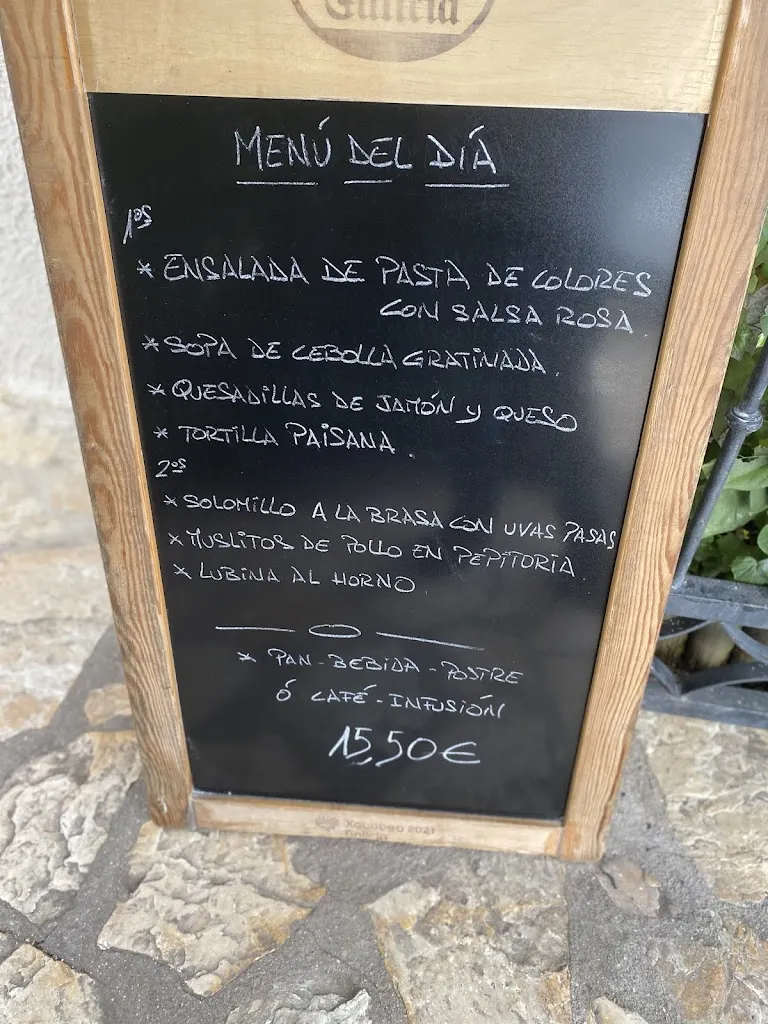 Galicia
MENÚ DEL DÍA
1ºS
* ENSALADA DE PASTA DE COLORES
CON SALSA ROSA.
* SOPA DE CEBOLLA GRATINADA.
* QUESADILLAS DE JAMÓN Y QUESO
* TORTILLA PAISANA.
2ºS
* SOLOMILLO A LA BRASA CON UVAS PASAS
* MUSLITOS DE POLLO EN PEPITORIA
* LUBINA AL HORNO
* PAN - BEBIDA - POSTRE
Ó CAFÉ - INFUSIÓN
15,50€
Xacobeo 2021
Galicia